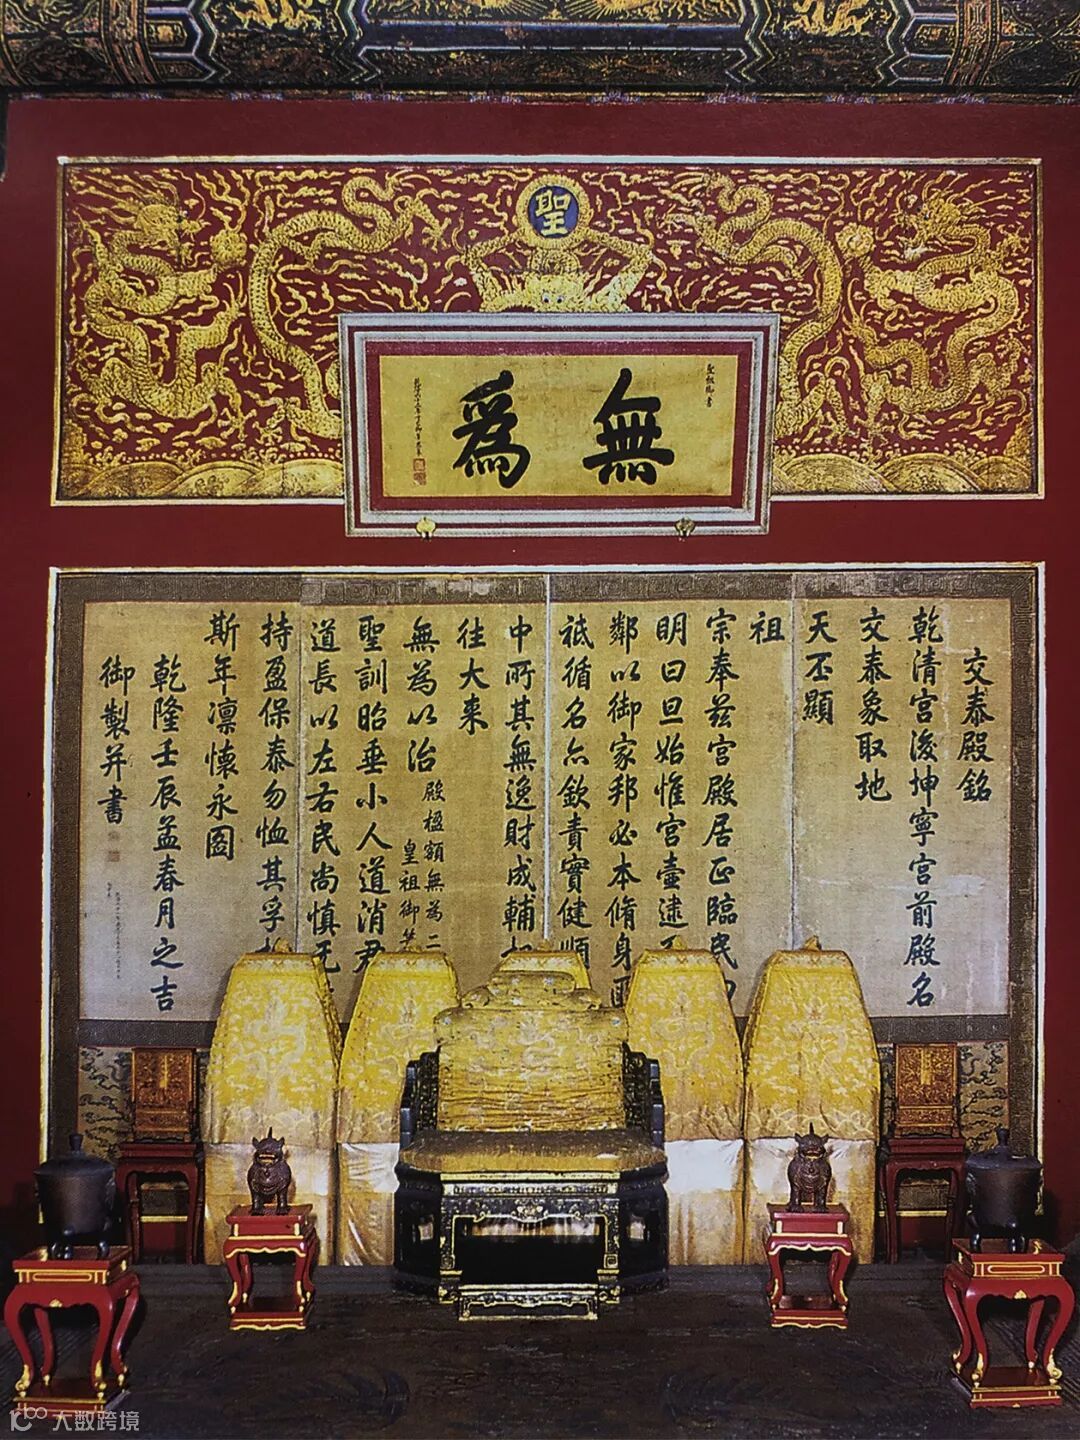 聖
聖祖御書
無爲
交泰殿銘
乾清宮後坤寧宮前殿名
交泰象取地
天丕顯
祖
宗奉茲宮殿居正臨民
明曰旦始惟宮壼逮
鄰以御家邦必本脩身
祗循名亦欽責實健順
中所其無逸財成輔
往大来
無為以治
殿楹額無為二
皇祖御筆
聖訓昭垂小人道消君
道長以左右民尚慎无
持盈保泰勿恤其孚
斯年凜懷永圖
乾隆壬辰孟春月之吉
御製并書
大数跨境